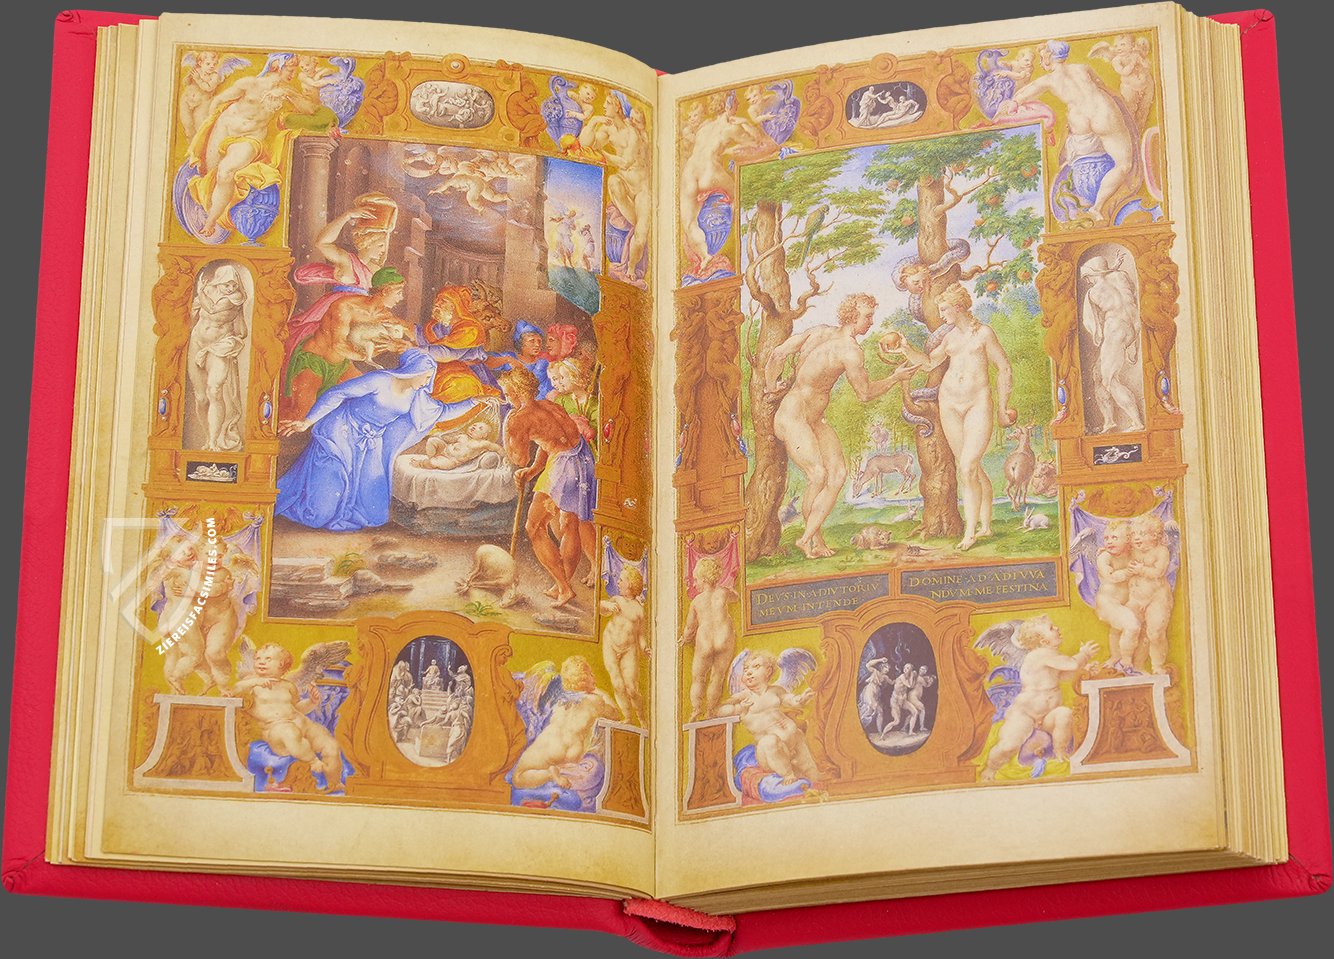 DEVS·IN·ADIVTORIV
MEVM·INTENDE
DOMINE·AD·ADIVVA
NDVM·ME·FESTINA
ZIEREISFACSIMILES.COM